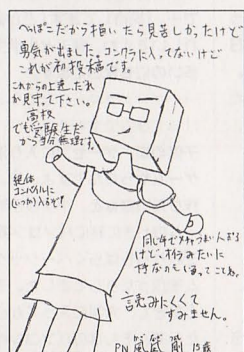 へっぽこだから描いたら見苦しかったけど
勇気が出ました。コンクラに入ってないけど
これが初投稿です。
これからの上達、たれ
か見守って下さい。
高校
でも受験生だ
から当分無理です。
絶体
コンパイルに
(いつか)入るぞ!
同じ年でメチャうまい人おる
けど、オラみたいに
特なのもいるってことね。
読みにくくて
すみません。
PN
15歳